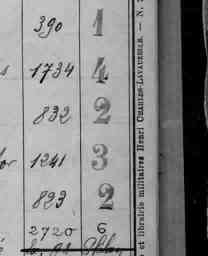 390 1
1734 4
832 2
1241 3
823 2
2720 6
et librairie militaires Henri Charles-Lavauzelle. — N.